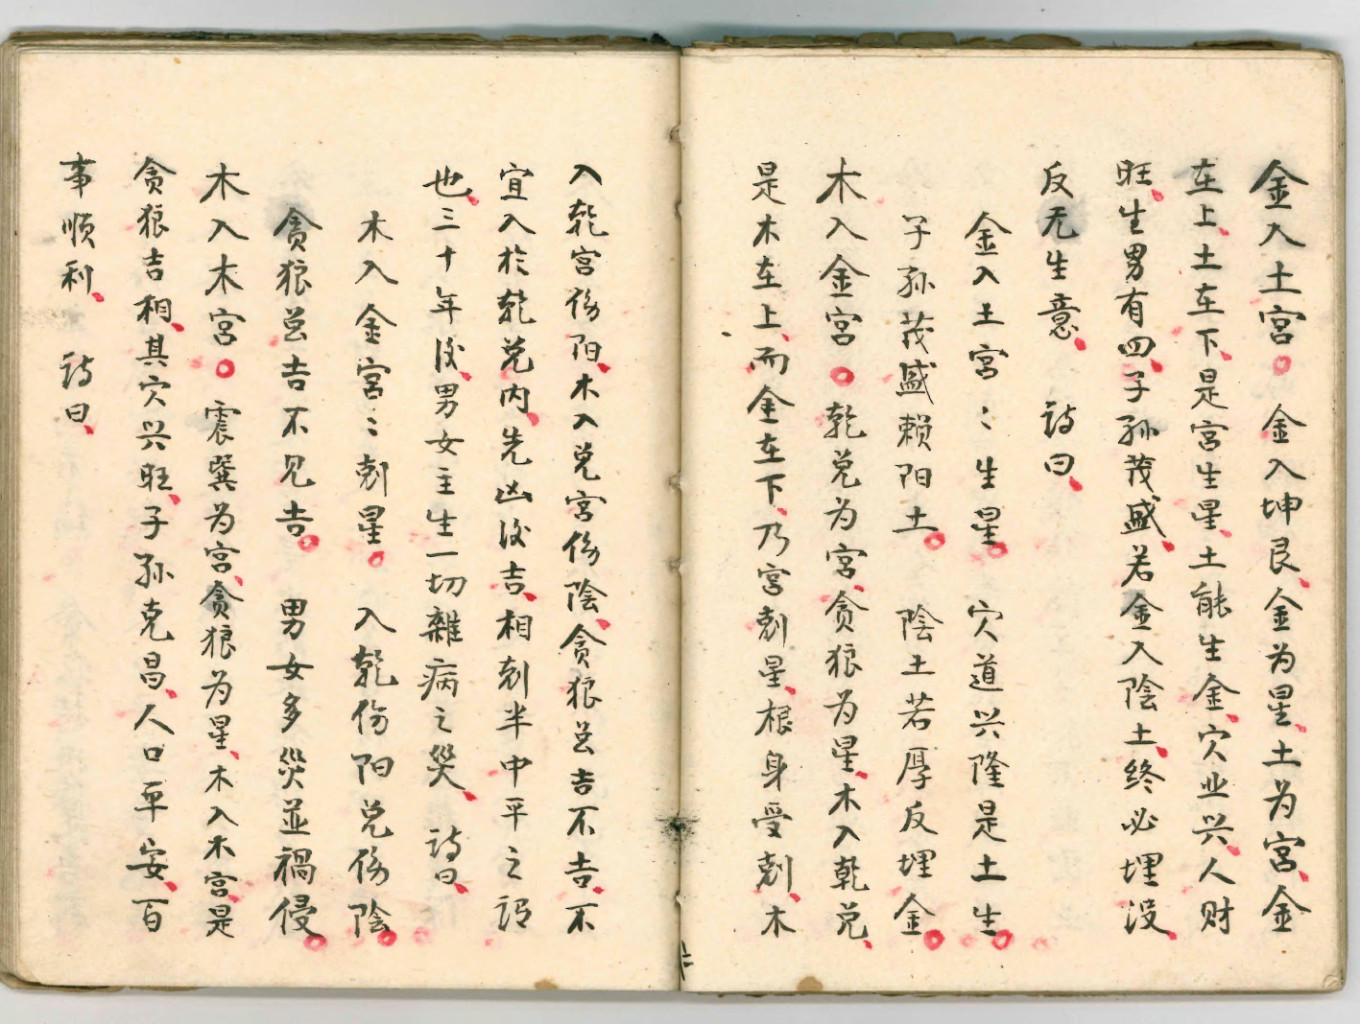 金入土宫。金入坤艮、金为星、土为宫、金
在上、土在下、是宫生星、土能生金、穴业兴、人财
旺、生男有四、子孙茂盛、若金入陰土、终必埋没、
反无生意、诗曰、
金入土宫〻生星。穴道兴隆是土生。
子孙茂盛赖阳土。陰土若厚反埋金。
木入金宫。乾兑为宫、贪狼为星、木入乾兑、
是木在上、而金在下、乃宫剋星、根身受剋、木
入乾宫伤阳、木入兑宫伤陰、贪狼总吉不吉、不
宜入於乾兑内、先凶後吉、相剋半中平之谓
也、三十年後、男女主生一切雜病之災、诗曰、
木入金宫〻剋星。入乾伤阳兑伤陰。
贪狼总吉不见吉。男女多災並禍侵。
木入木宫。震巽为宫、贪狼为星、木入木宫、是
贪狼吉相、其穴兴旺、子孙克昌、人口平安、百
事顺利、诗曰、